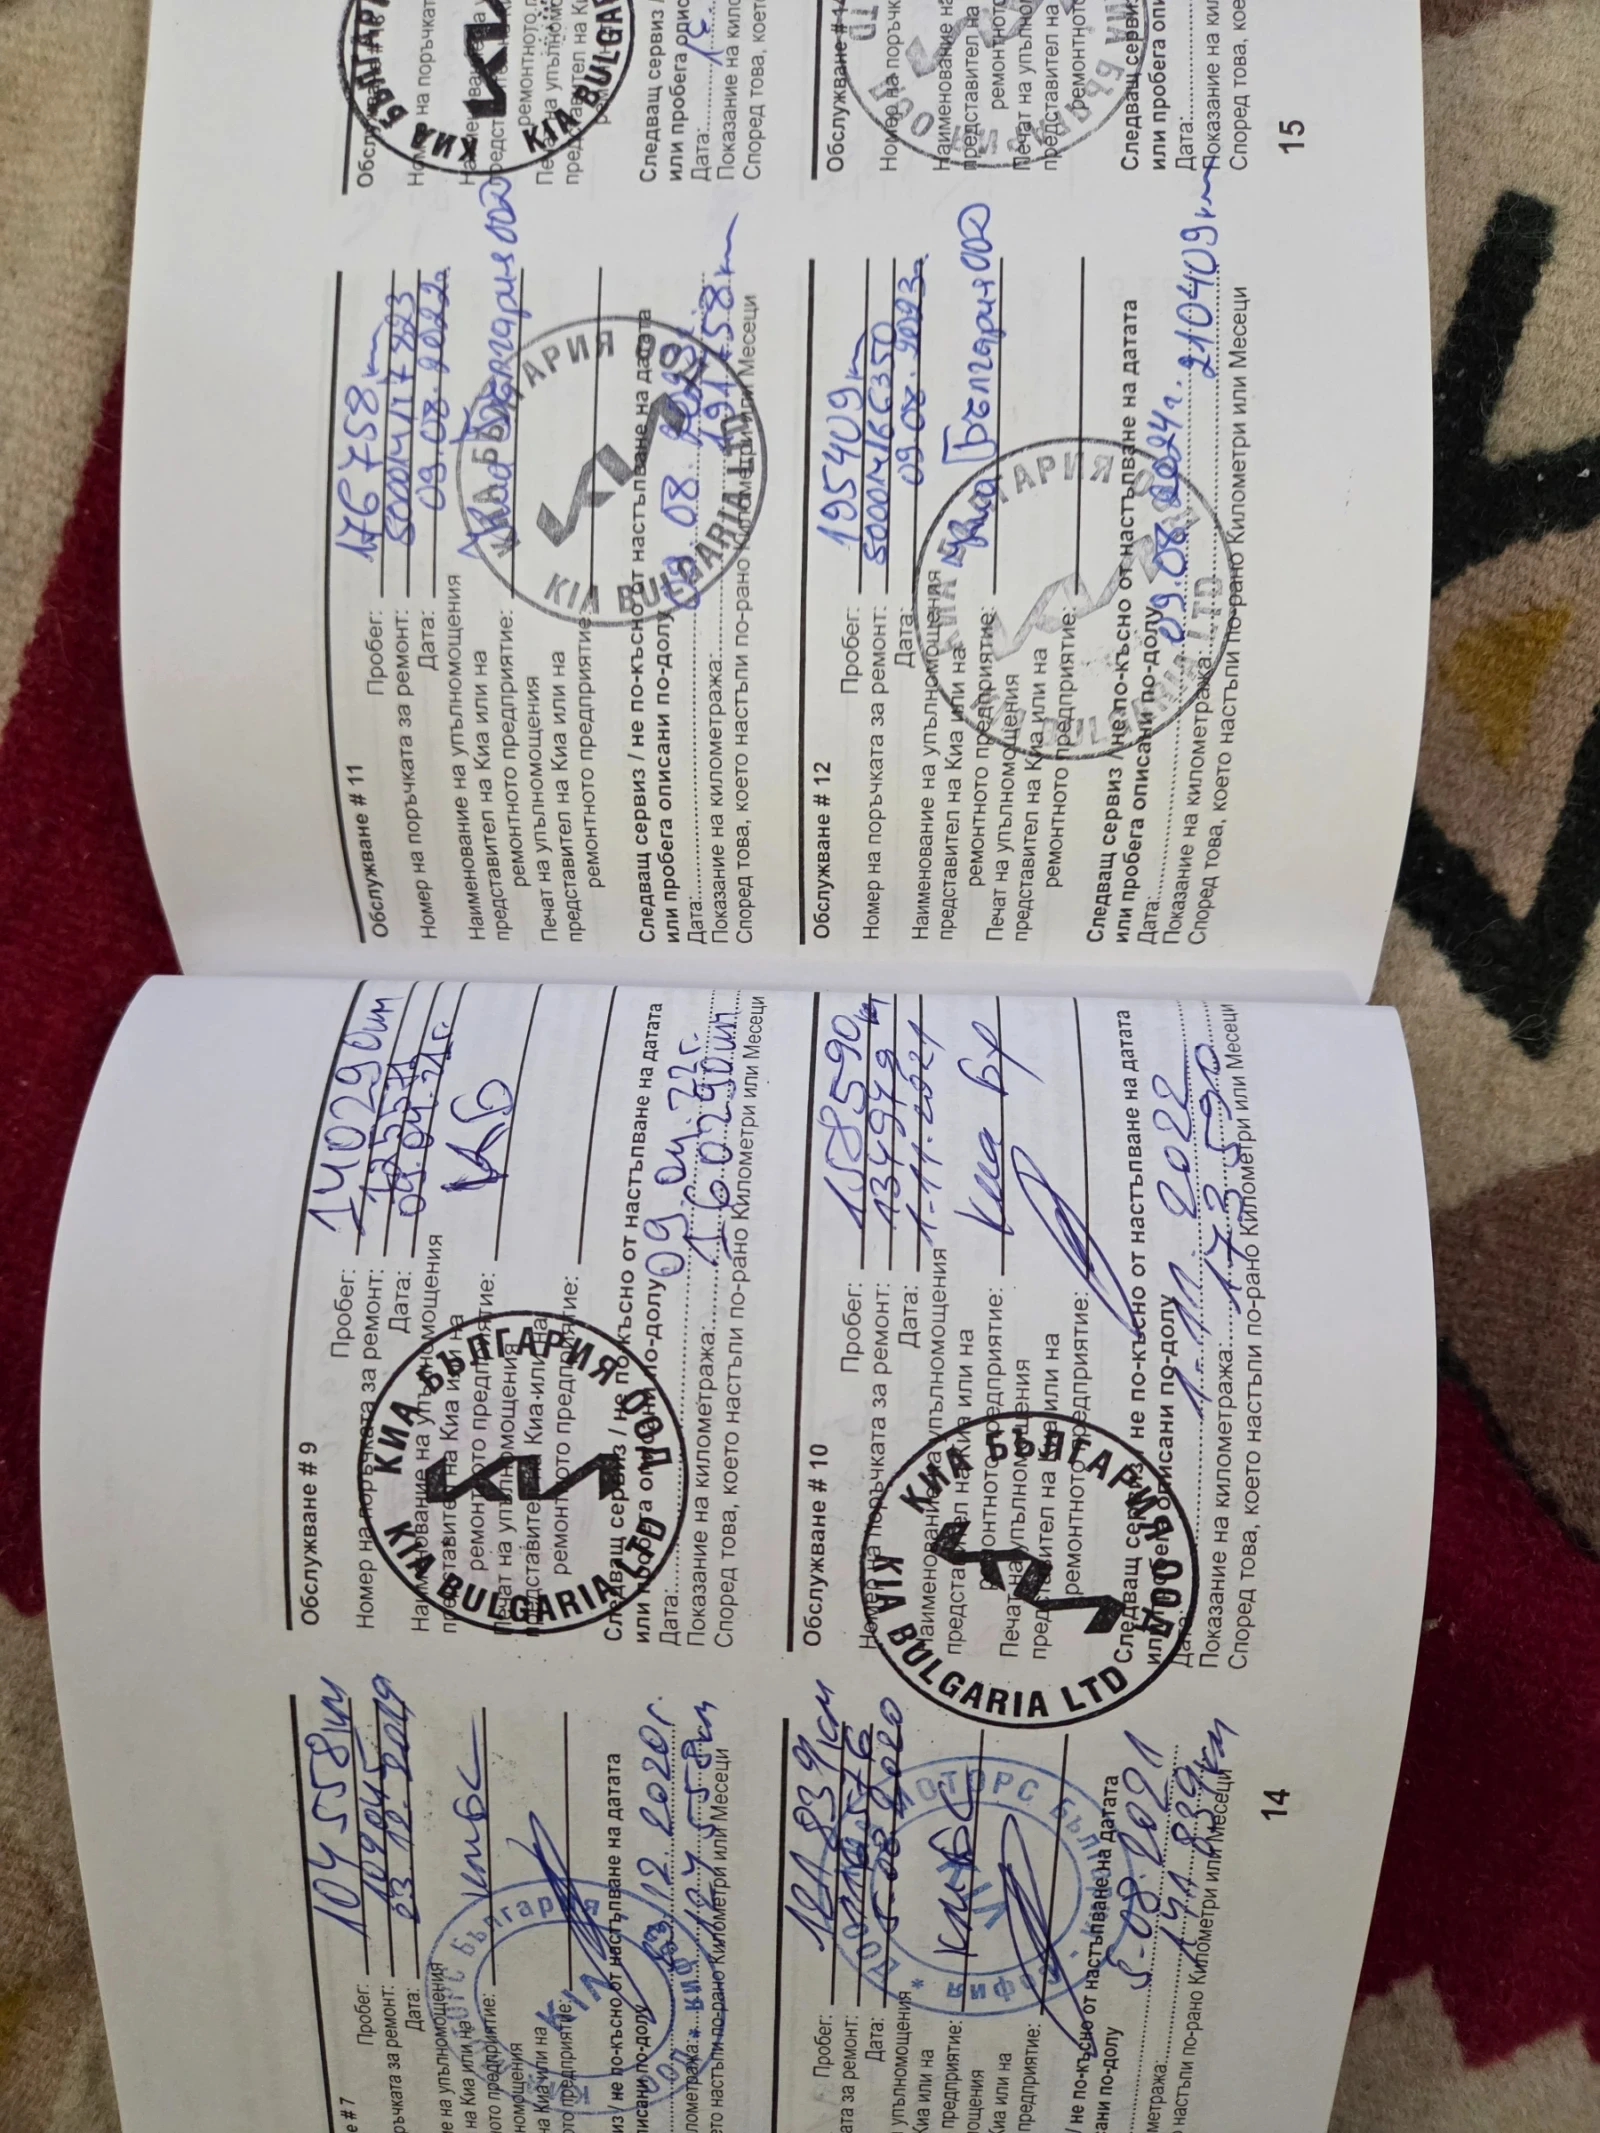 е # 7
Пробег: 104558 км
ръчката за ремонт: 109045
Дата: 23.12.2019
е на упълномощения
на Киа или на
ното предприятие: КМБС
номощения
на Киа или на
ото предприятие:
из / не по-късно от настъпване на датата
писани по-долу
23/12.2020г.
лометража: 124 558 км
ето настъпи по-рано Километри или Месеци
Пробег: 121 839 км
ата за ремонт:
Дата: 5-08-2020
упълномощения
Киа или на
предприятие: КМБС
ощения
Киа или на
предприятие:
/ не по-късно от настъпване на датата
сани по-долу
5-08-2021
метраж​а: 141 839 км
настъпи по-рано Километри или Месеци
14
Обслужване # 9
Пробег: 140290 км
Номер на поръчката за ремонт:
Дата: 09.04.21г.
Наименование на упълномощения
представител на Киа или на
ремонтното предприятие: КБ
Печат на упълномощения
представител на Киа или на
ремонтното предприятие:
Следващ сервиз / не по-късно от настъпване на датата
или пробега описани по-долу
Дата: 09.04.22г.
Показание на километража: 160290 км
Според това, което настъпи по-рано Километри или Месеци
КИА БЪЛГАРИЯ ООД
KIA BULGARIA LTD
Обслужване # 10
Пробег: 158590 км
Номер на поръчката за ремонт: 1349749
Дата: 1-11-2021
Наименование на упълномощения
представител на Киа или на
ремонтното предприятие: Киа Бг
Печат на упълномощения
представител на Киа или на
ремонтното предприятие:
Следващ сервиз / не по-късно от настъпване на датата
или пробега описани по-долу
Дата: 1-11-2022
Показание на километража: 173 590
Според това, което настъпи по-рано Километри или Месеци
КИА БЪЛГАРИЯ ООД
KIA BULGARIA LTD
Обслужване # 11
Пробег: 176758 км
Номер на поръчката за ремонт: 5000417823
Дата: 09.08.2022г.
Наименование на упълномощения
представител на Киа или на
ремонтното предприятие: Киа България ООД
Печат на упълномощения
представител на Киа или на
ремонтното предприятие:
Следващ сервиз / не по-късно от настъпване на датата
или пробега описани по-долу
Дата: 09.08.2023г.
Показание на километража: 191758 км
Според това, което настъпи по-рано Километри или Месеци
КИА БЪЛГАРИЯ ООД
KIA BULGARIA LTD
Обслужване # 12
Пробег: 195409 км
Номер на поръчката за ремонт: 5000466350
Дата: 09.08.2023г.
Наименование на упълномощения
представител на Киа или на
ремонтното предприятие: Киа България ООД
Печат на упълномощения
представител на Киа или на
ремонтното предприятие:
Следващ сервиз / не по-късно от настъпване на датата
или пробега описани по-долу
Дата: 09.08.2024г.
Показание на километража: 210409 км
Според това, което настъпи по-рано Километри или Месеци
Номер на поръчкат
ремонтното п
Печат на упълномо
представител на Ки
Следващ сервиз /
или пробега опис
Дата:
Показание на кило
Според това, коет
КИА БЪЛГАРИ
KIA BULGAR
Обслужване # 14
Номер на поръчк
Наименование на
представител на
ремонтното
Печат на упълном
представител на
ремонтното
Следващ серви
или пробега опи
Дата:
Показание на ки
Според това, кое
15